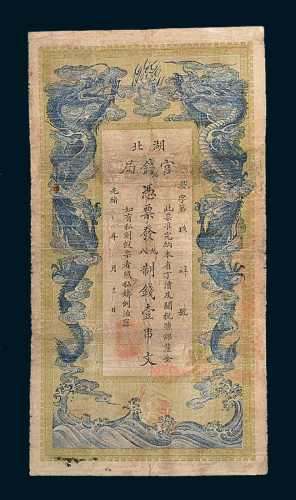 湖北
官錢局
字第 號
此票准完納本省丁漕及關稅鹽課釐金
憑票發九八制錢壹串文
如有私刻假票者照私鑄例治罪
光緒 年 月 日